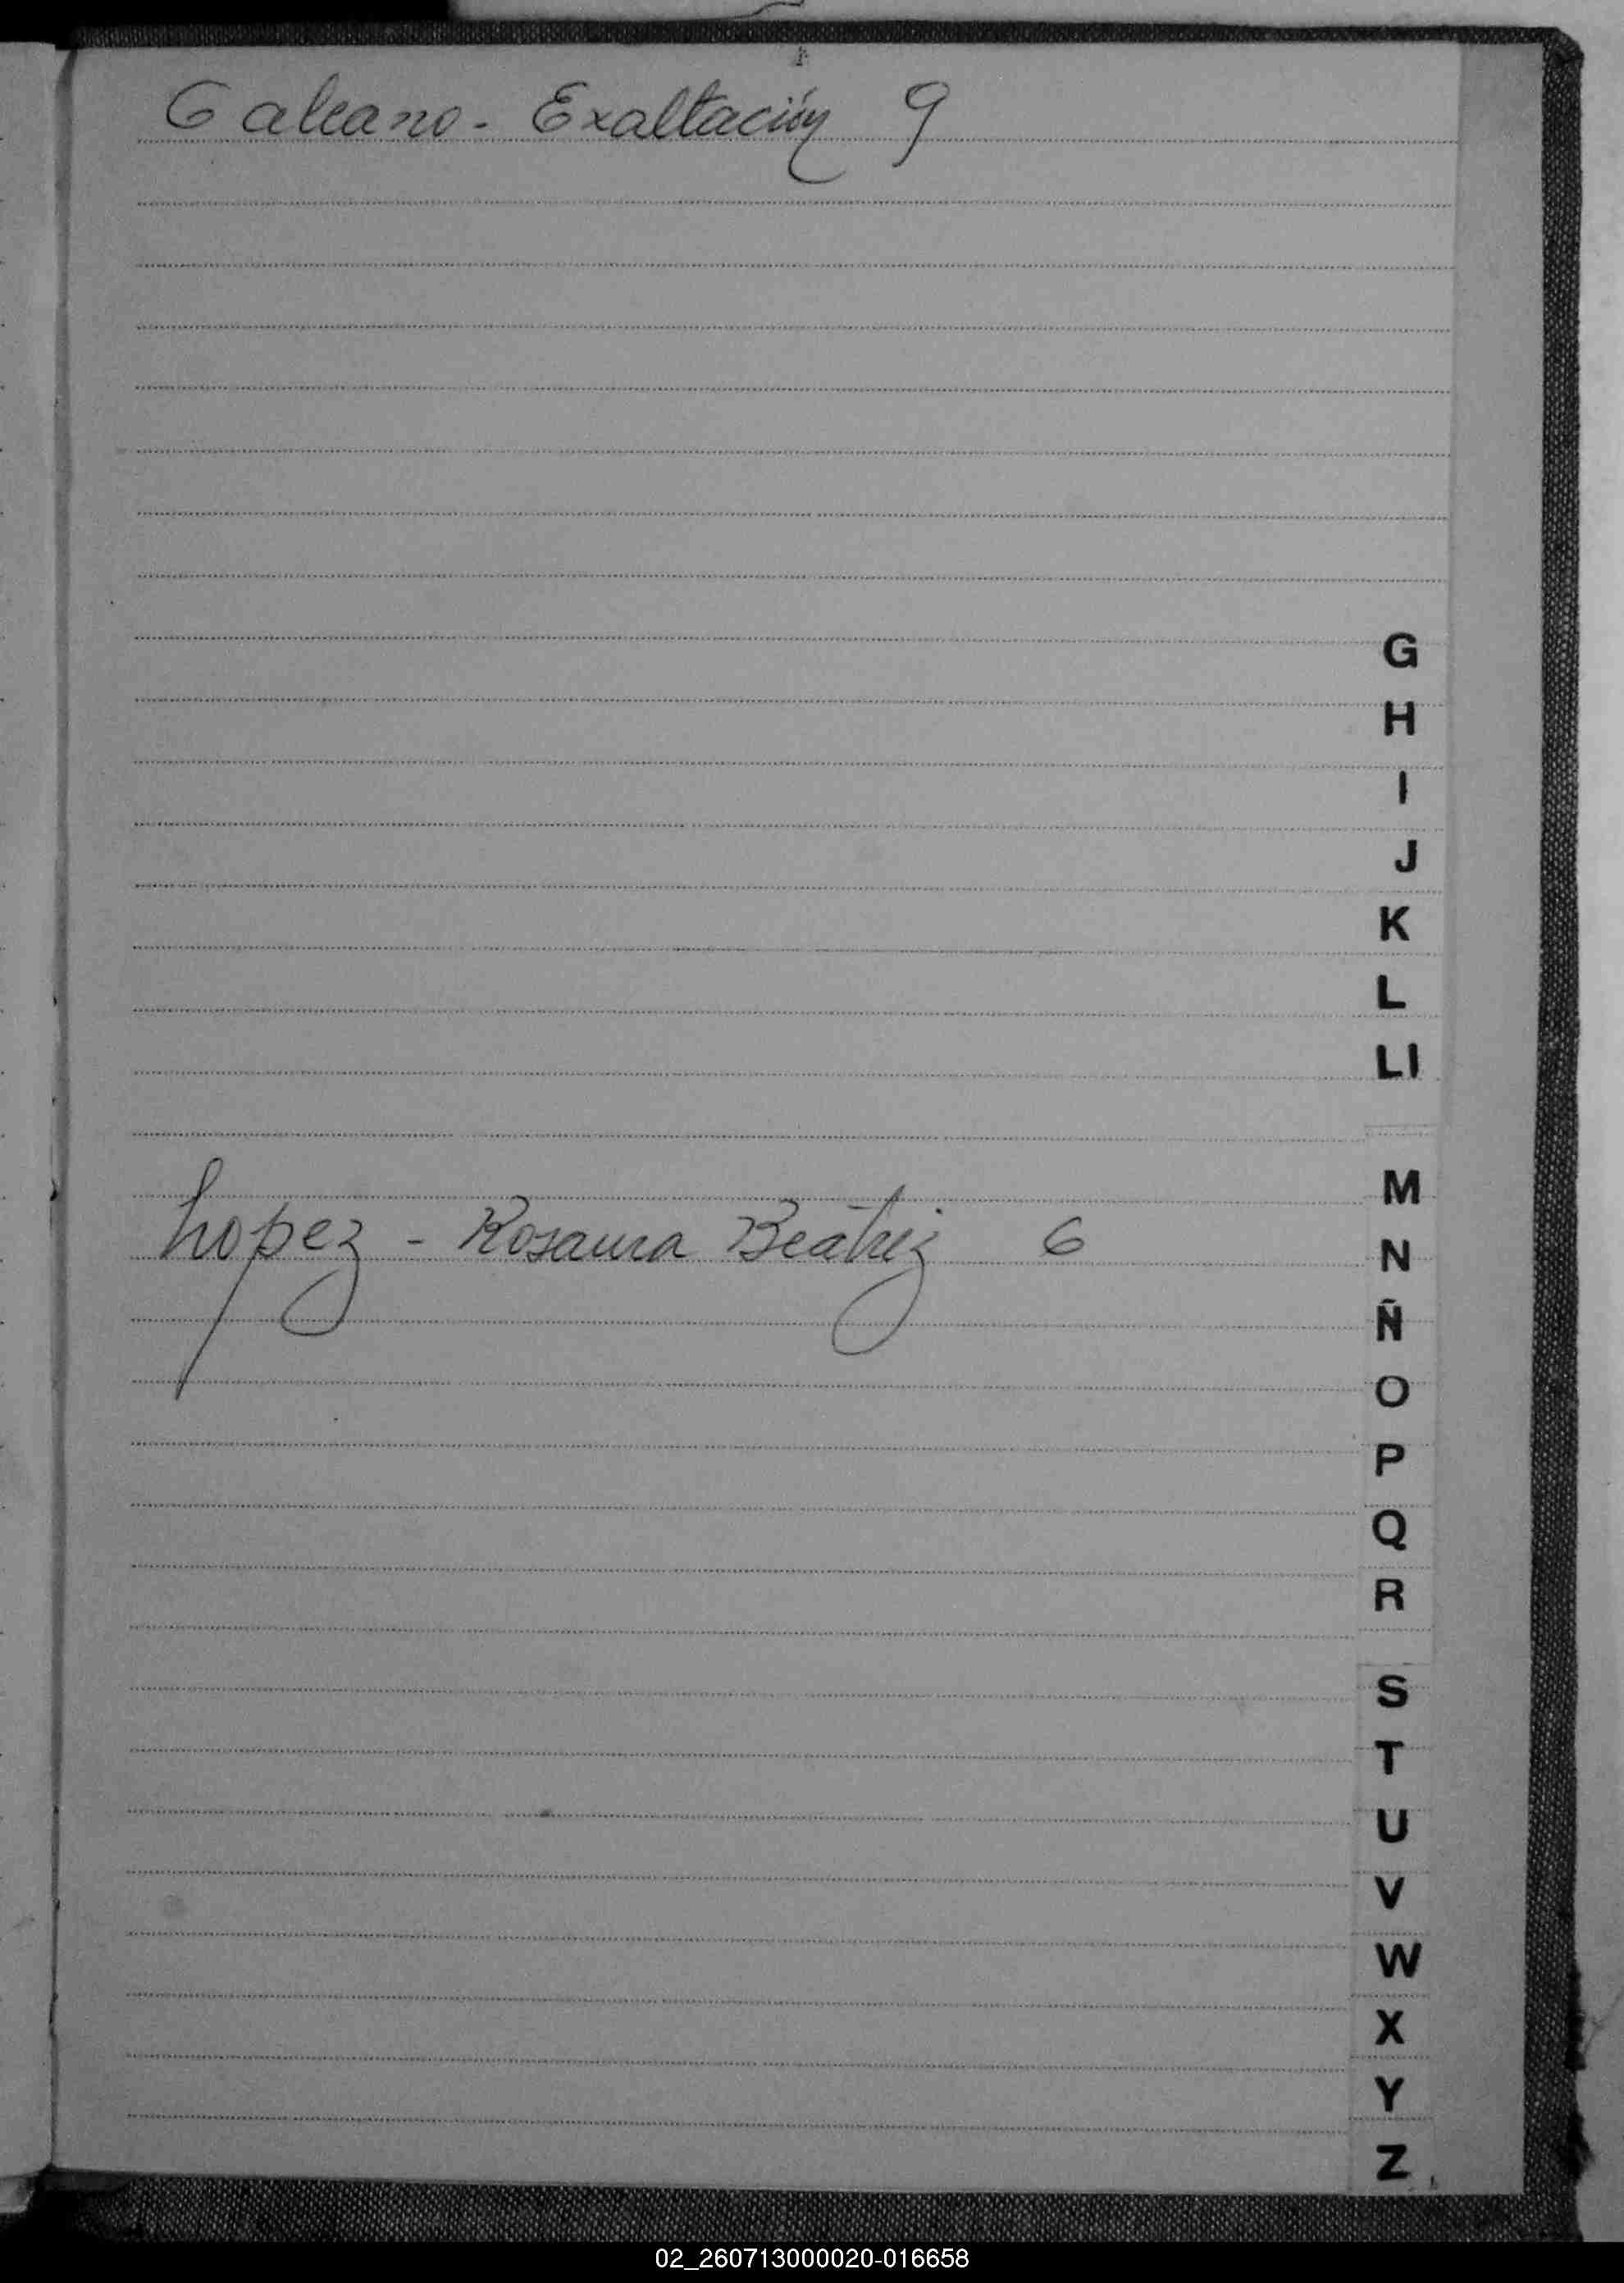 Galeano - Exaltación 9
G
H
I
J
K
L
Ll
M
Lopez - Rosaura Beátriz 6
N
Ñ
O
P
Q
R
S
T
U
V
W
X
Y
Z
02_260713000020-016658